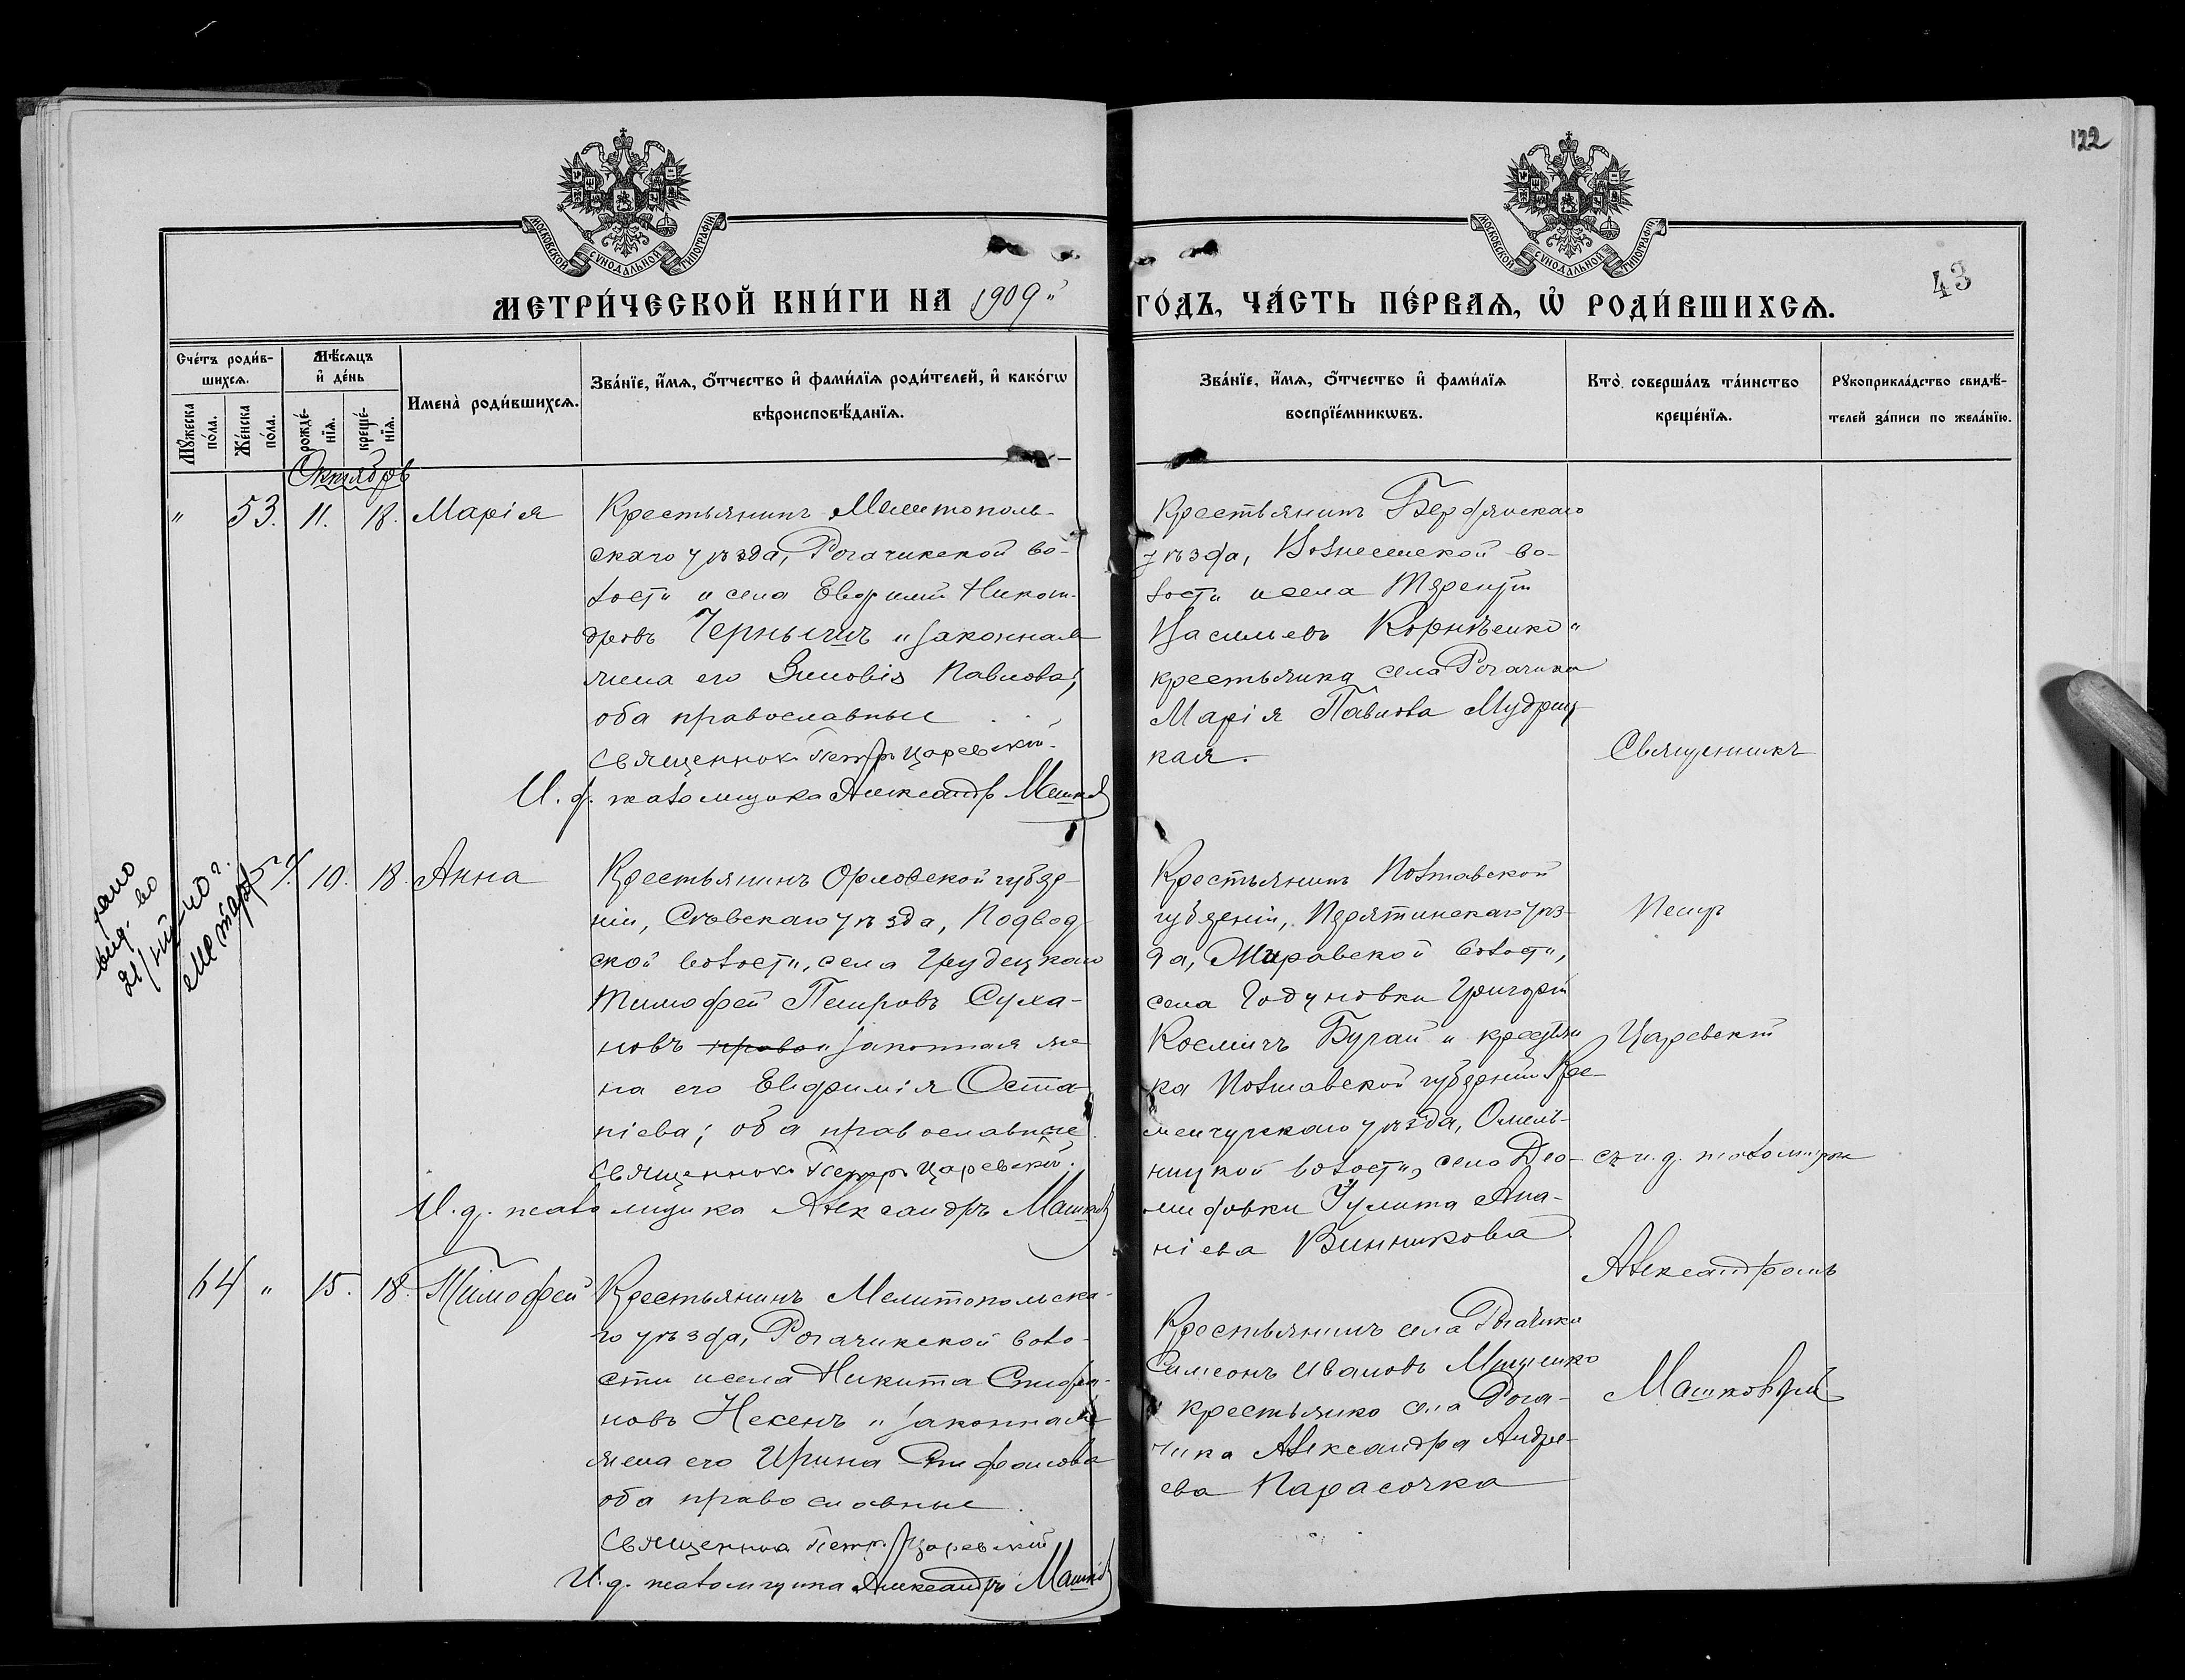 122
43
МОСКОВСКОЙ СУНОДАЛЬНОЙ ТИПОГРАФІИ
МОСКОВСКОЙ СУНОДАЛЬНОЙ ТИПОГРАФІИ
МЕТРИ́ЧЕСКОЙ КНИ́ГИ НА 1909 "
ГО́ДЪ, ЧА́СТЬ ПЕ́РВАѦ, Ѡ҆ РОДИ́ВШИХСѦ.
Сче́тъ роди́в-
шихсѧ.
Мѣ́сѧцъ
и҆ де́нь
Мꙋ́жеска
по́ла.
Же́нска
по́ла.
рожде́-
нїѧ.
креще́-
нїѧ.
Имена̀ роди́вшихсѧ.
Зва́нїе, и҆́мѧ, ѻ҆́тчество и҆ фами́лїѧ роди́телей, и҆ како́гѡ
вѣроисповѣ́данїѧ.
Зва́нїе, и҆́мѧ, ѻ҆́тчество и҆ фами́лїѧ
воспрїе́мникѡвъ.
Кто̀ соверша́лъ та́инство
креще́нїѧ.
Рꙋкоприкла́дство свидѣ́-
телей за́писи по жела́нїю.
Октябрь
" 53. 11. 18. Марія
Крестьянинъ Мелитополь-
скаго уѣзда, Рогачикской во-
лости и села Евфимій Никан-
дровъ Чернышъ и законная
жена его Зиновія Павлова;
оба православные
Священник Петр Царевскій.
И. д. псаломщика Александръ Машков
Крестьянинъ Бердянскаго
уѣзда, Вознесенской во-
лости и села Терентій
Васильевъ Корніенко и
крестьянка села Рогачика
Марія Павлова Мудриц-
кая.
57. 10. 18. Анна
Крестьянинъ Орловской губер-
ніи, Сѣвскаго уѣзда, Подвод-
ской волости, села Грудецкаго
Тимофей Петровъ Суха-
новъ право и законная же
на его Евфимія Оста-
піева; оба православные
Священник Петр Царевскій.
И. д. псаломщика Александръ Машков
Крестьянинъ Полтавской
губерніи, Пирятинскаго уѣз-
да, Сели
села Годуновки Григорій
Косминъ Бугай и крестьян
ка Полтавской губерніи Кре-
менчугскаго уѣзда, Омель-
ницкой волости, села Део-
мидовки Улита Ана-
ніева Винникова
64 " 15. 18. Тимофей
Крестьянинъ Мелитопольска-
го уѣзда, Рогачикской воло-
сти и села Никита Стефа-
новъ Несенъ и законная
жена его Ирина Стефанова
оба православные.
Священник Петр Царевскій
И. д. псаломщика Александръ Машков
Крестьянинъ села Рогачика
Симеонъ Ивановъ Мищенко
и крестьянка села Рога-
чика Александра Андре-
ева Парасочка
Священникъ
Петръ
Царевскій
съ и. д. псаломщика
Александромъ
Машковымъ